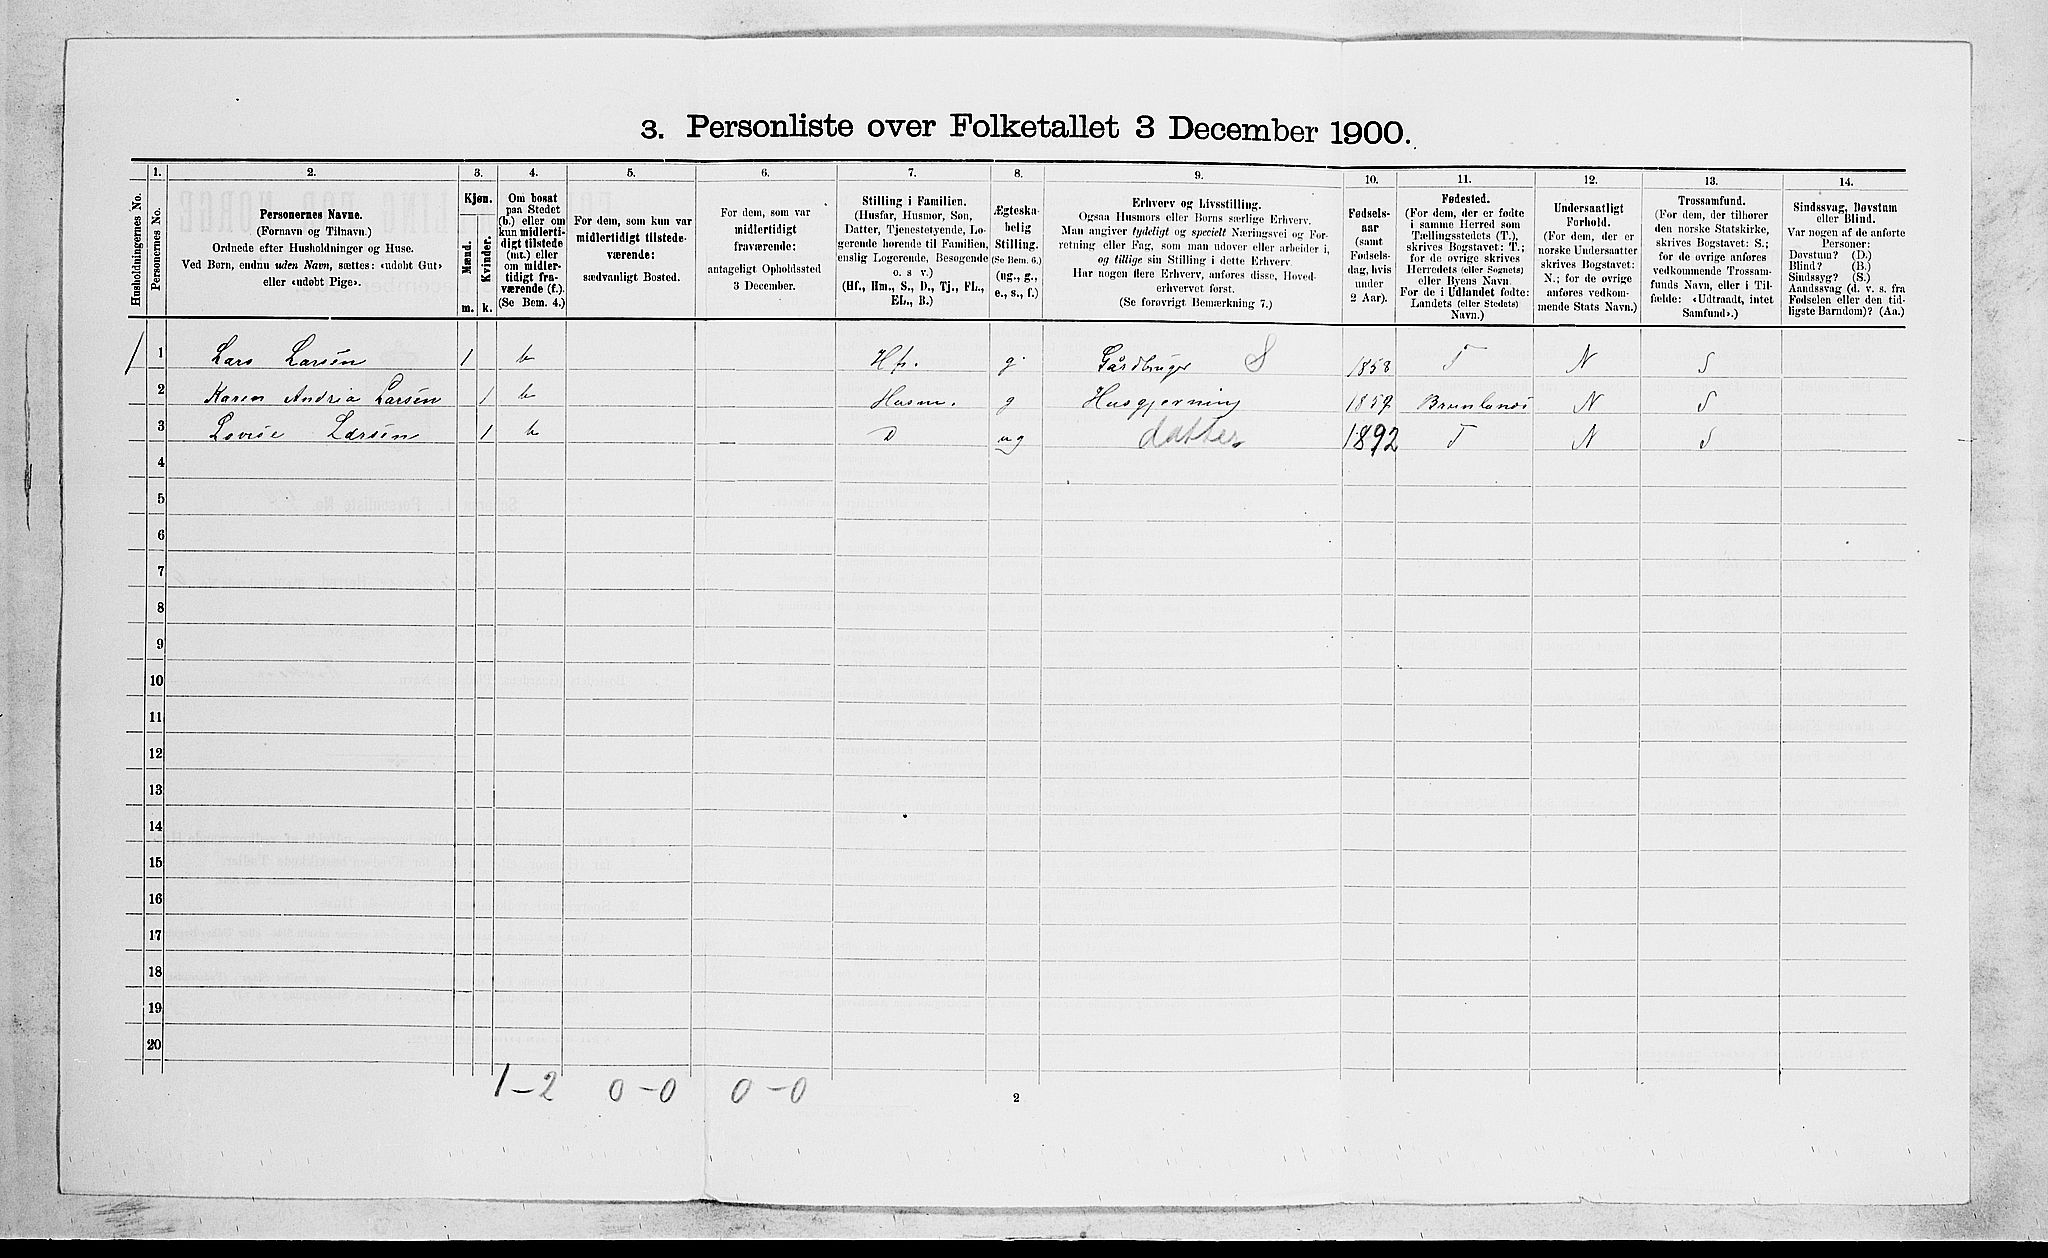 3. Personliste over Folketallet 3 December 1900.
Husholdningernes No.
1. Personernes No.
2. Personernes Navne.
(Fornavn og Tilnavn.)
Ordnede efter Husholdninger og Huse.
Ved Børn, endnu uden Navn, sættes: «udøbt Gut»
eller «udøbt Pige».
3. Kjøn.
Mænd. m.
Kvinder. k.
4. Om bosat
paa Stedet
(b.) eller om
kun midlerti-
digt tilstede
(mt.) eller
om midler-
tidigt fra-
værende (f.).
(Se Bem. 4.)
5. For dem, som kun var
midlertidigt tilstede-
værende:
sædvanligt Bosted.
6. For dem, som var
midlertidigt
fraværende:
antageligt Opholdssted
3 December.
7. Stilling i Familien.
(Husfar, Husmor, Søn,
Datter, Tjenestetyende, Lo-
gerende hørende til Familien,
enslig Logerende, Besøgende
o. s v.)
(Hf., Hm., S., D., Tj., FL.,
EL., B.)
8. Ægteska-
belig
Stilling.
(Se Bem. 6.)
(ug., g.,
e., s., f.)
9. Erhverv og Livsstilling.
Ogsaa Husmors eller Børns særlige Erhverv.
Man angiver tydeligt og specielt Næringsvei og For-
retning eller Fag, som man udover eller arbeider i,
og tillige sin Stilling i dette Erhverv.
Har nogen flere Erhverv, anføres disse, Hoved-
erhvervet først.
(Se forøvrigt Bemerkning 7.)
10. Fødsels-
aar
(samt
Fødsels-
dag, hvis
under
2 Aar).
11. Fødested.
(For dem, der er fødte
i samme Herred som
Tællingsstedets (T.),
skrives Bogstavet: T.;
for de øvrige skrives
Herredets (eller Sognets)
eller Byens Navn.
For de i Udlandet fødte:
Landets (eller Stedets)
Navn.)
12. Undersaatligt
Forhold.
(For dem, der er
norske Undersaatter
skrives Bogstavet:
N.; for de øvrige
anføres vedkom-
mende Stats Navn.)
13. Trossamfund.
(For dem, der tilhører
den norske Statskirke,
skrives Bogstavet: S.;
for de øvrige anføres
vedkommende Trossam-
funds Navn, eller i Til-
fælde: «Udtraadt, intet
Samfund».)
14. Sindssvag, Døvstum
eller Blind.
Var nogen af de anførte
Personer:
Døvstum? (D.)
Blind? (B.)
Sindssyg? (S.)
Aandssvag (d. v. s. fra
Fødselen eller den tid-
ligste Barndom)? (Aa.)
1 1 Lars Larsen 1 b Hf. g Gårdbruger S 1858 T N S
2 Karen Andria Larsen 1 b Husm. g Husgjerning 1859 Brunlanes N S
3 Lovise Larsen 1 b D ug datter 1892 T N S
4
5
6
7
8
9
10
11
12
13
14
15
16
17
18
19
20
1-2 0-0 0-0
2